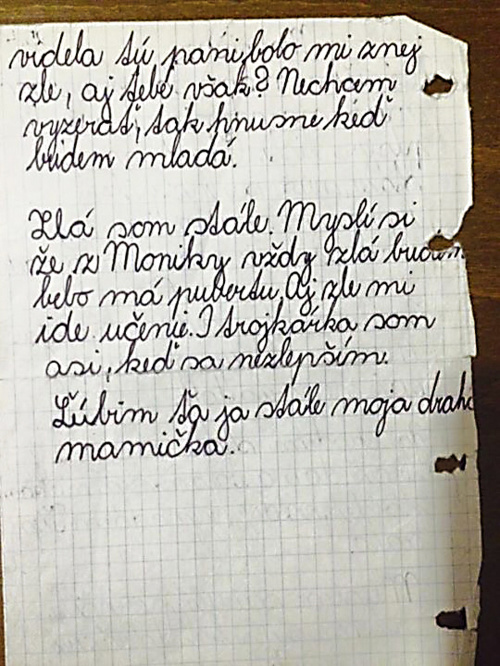 videla tú pani, bolo mi z nej
zle, aj tebe však? Nechcem
vyzerať, tak hnusne keď
budem mladá.
Zlá som stále. Myslí si
že z Moniky vždy zlá budem
bebo má pubertu. Aj zle mi
ide učenie. I trojkárka som
asi, keď sa nezlepším.
Ľúbim ťa ja stále moja drahá
mamička.